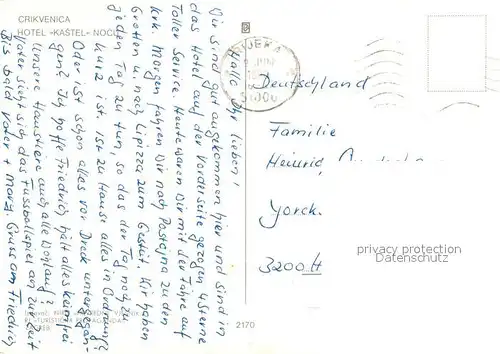 CRIKVENICA
HOTEL »KAŠTEL« NOĆU
Hallo Ihr Lieben!
Wir sind gut angekommen hier und sind in
das Hotel auf der Vorderseite gezogen 4 Sterne
Toller Service. Heute waren Wir mit der Fähre auf
Krk. Morgen fahren Wir nach Postojna zu den
Grotten u. nach Lipizza zum Gestüt. Wir haben
jeden Tag zu tun, so das der Tag noch zu
kurz ist. Ist zu Haus alles in Ordnung?
Oder ist schon alles vor Dreck untergegan-
gen? Ich hoffe Friedrich hält alles keimfrei
Unsere Haustiere auch alle Wohlauf?
Vater sieht sich das Fussballspiel an zur Zeit
Bis bald Vater + Marg. Gruss an Friedrich
RIJEKA
51000
Deutschland
Familie
Heinrid
Yorck.
3200 H
privacy protection
Datenschutz
2170